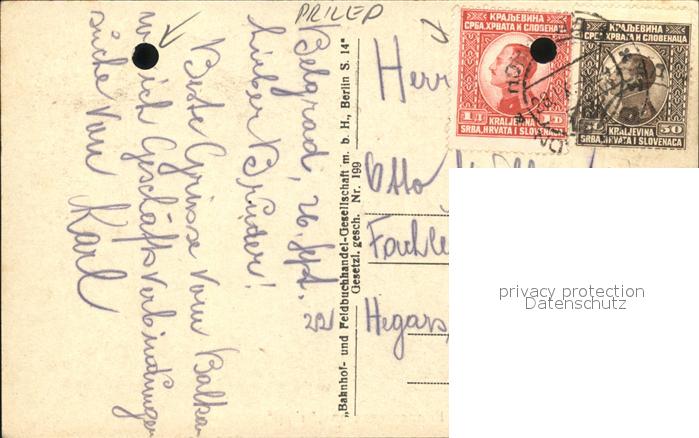 PRILEP
Belgrad, 26. Sept. 22
Lieber Bruder!
Beste Grüsse vom Balkan
wo ich Geschäftsverbindungen
suche von
Karl
"Bahnhof- und Feldbuchhandel-Gesellschaft m. b. H., Berlin S. 14"
Gesetzl. gesch. Nr. 199
Herr
Otto
Hegars
КРАЉЕВИНА
СРБА,ХРВАТА И СЛОВЕНАЦА
1 Д 1 D
KRALJEVINA
SRBA,HRVATA I SLOVENACA
КРАЉЕВИНА
СРБА,ХРВАТА И СЛОВЕНАЦА
50 50
KRALJEVINA
SRBA,HRVATA I SLOVENACA
privacy protection
Datenschutz